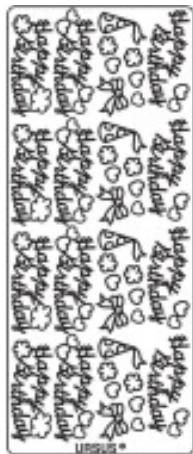 Happy Birthday Happy Birthday Happy Birthday
Happy Birthday Happy Birthday Happy Birthday
Happy Birthday Happy Birthday Happy Birthday
Happy Birthday Happy Birthday Happy Birthday
URSUS ®